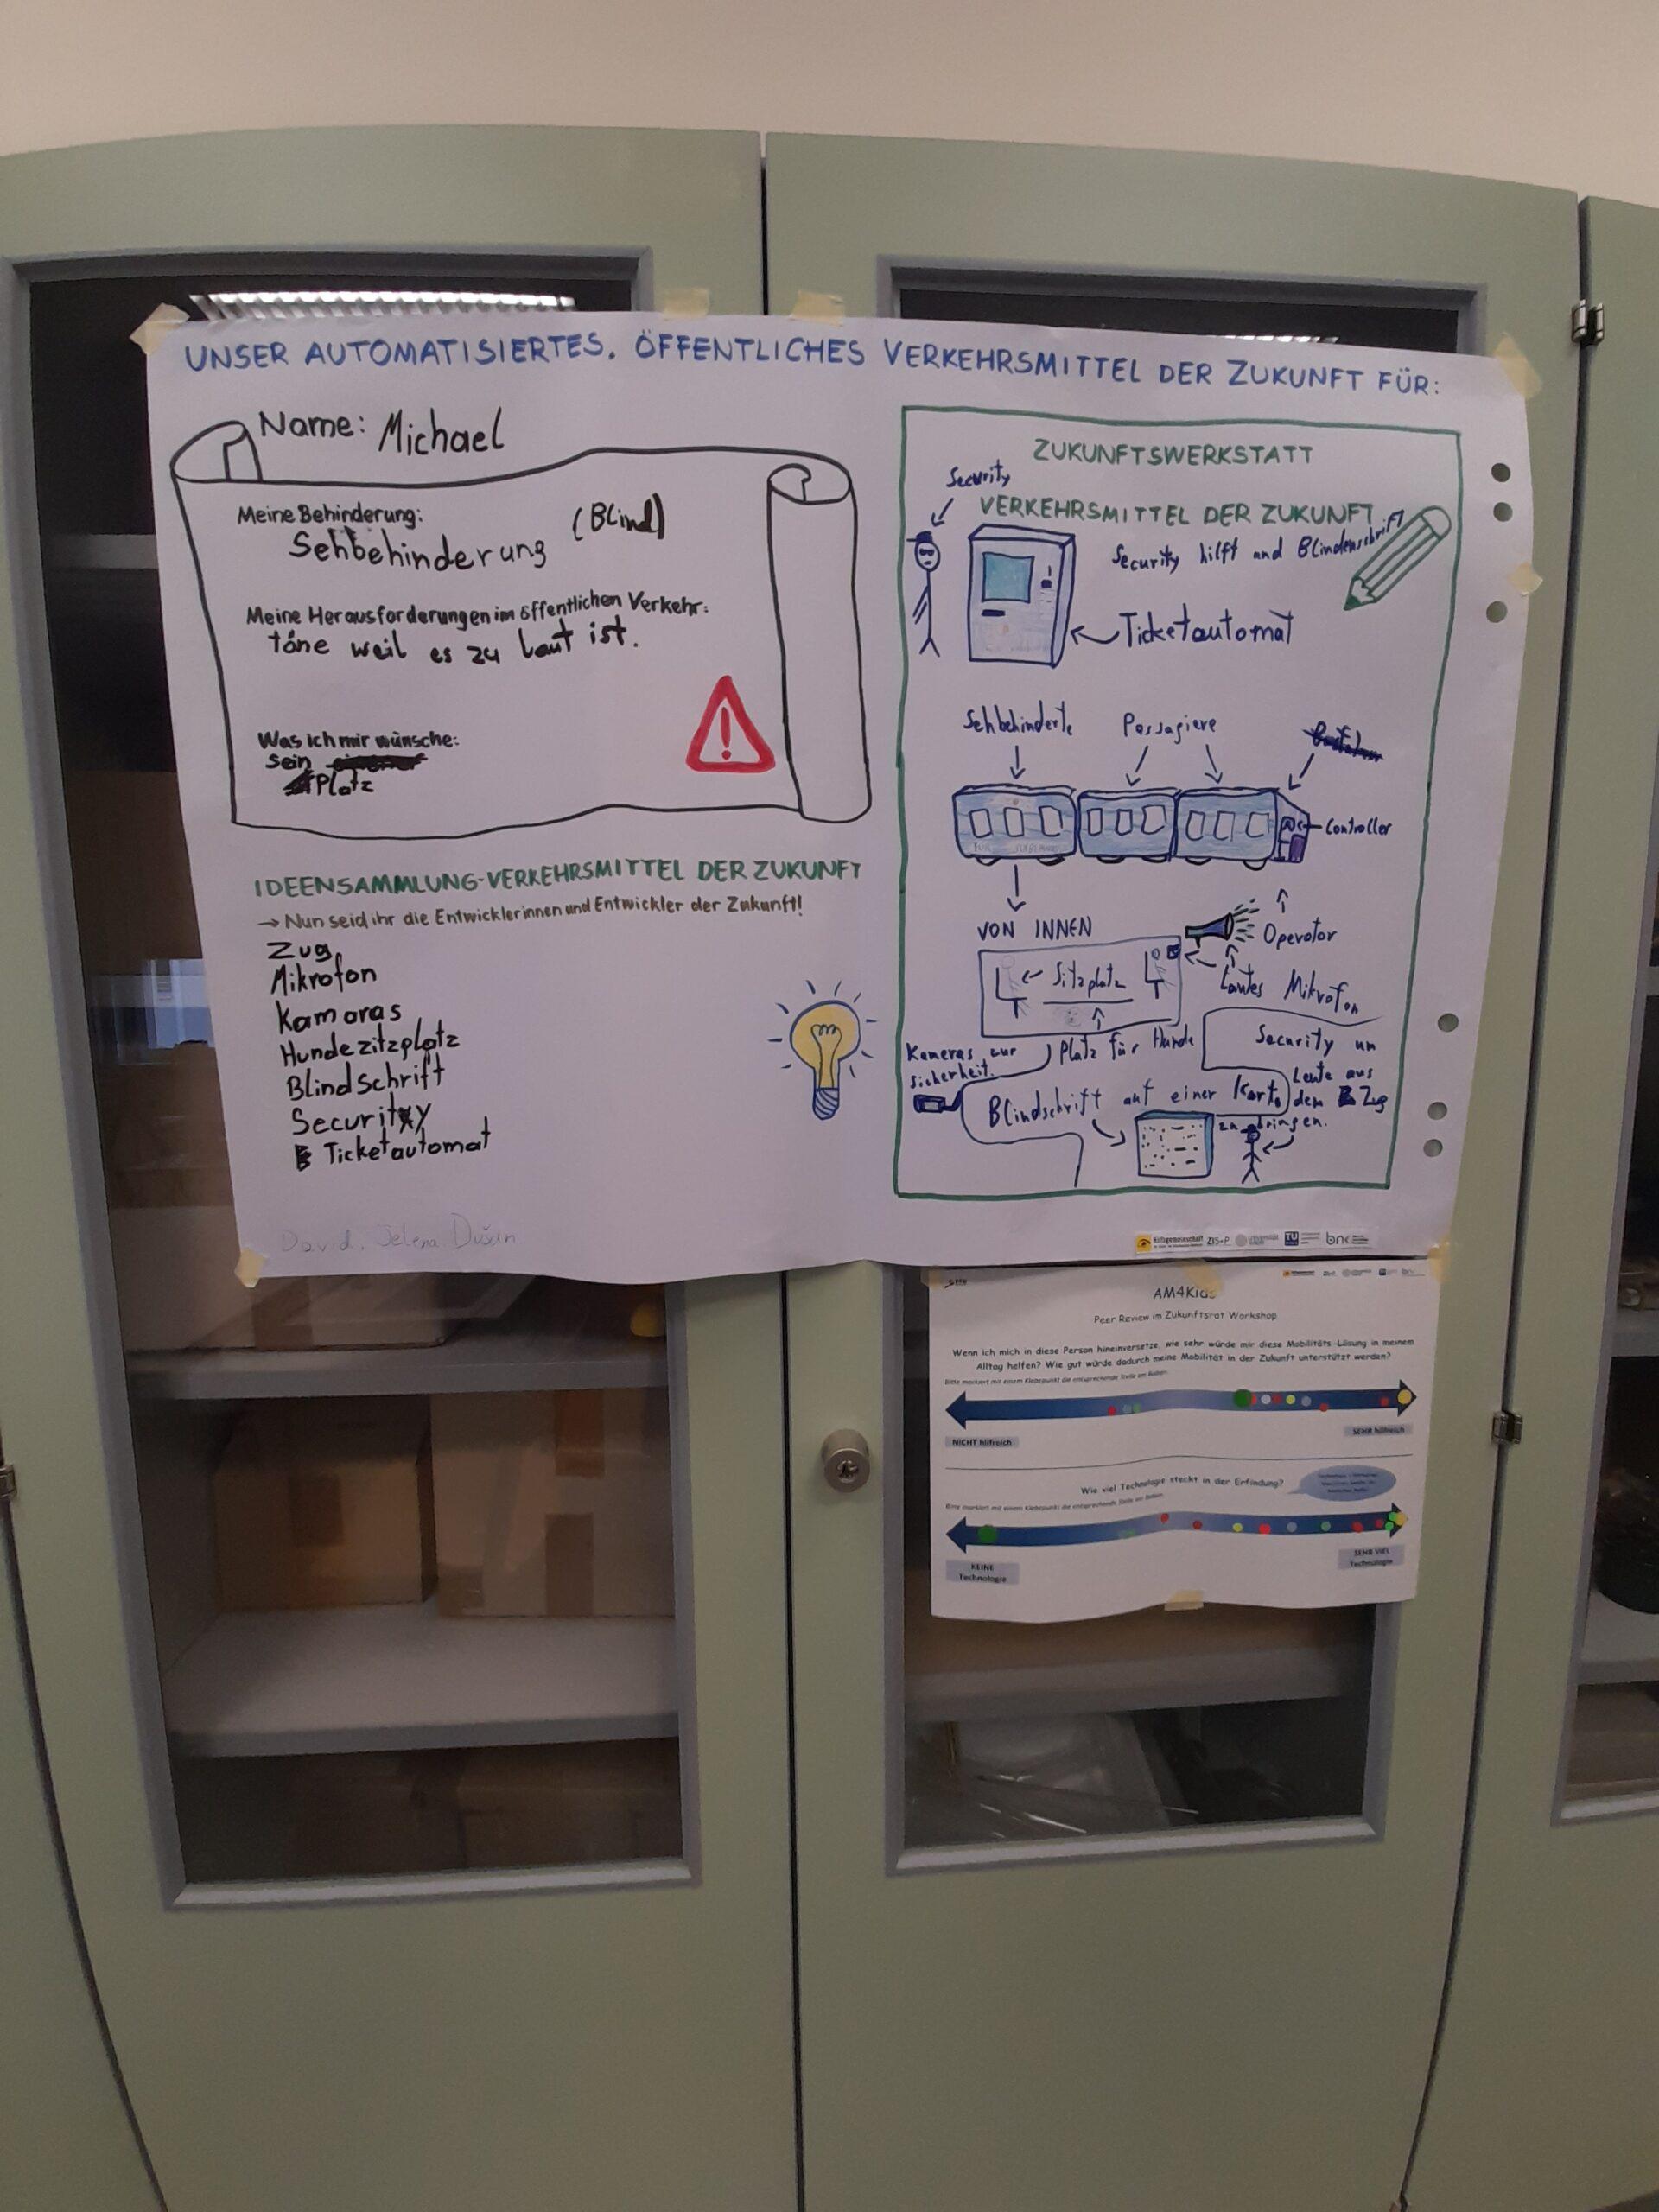 UNSER AUTOMATISIERTES, ÖFFENTLICHES VERKEHRSMITTEL DER ZUKUNFT FÜR:
Name: Michael
Meine Behinderung:
Sehbehinderung (Blind)
Meine Herausforderungen im öffentlichen Verkehr:
töne weil es zu laut ist.
Was ich mir wünsche:
sein
Platz
IDEENSAMMLUNG-VERKEHRSMITTEL DER ZUKUNFT
→ Nun seid ihr die Entwicklerinnen und Entwickler der Zukunft!
Zug
Mikrofon
Kameras
Hundezitzplatz
Blindschrift
Security
Ticketautomat
David, Jelena Dušan
ZUKUNFTSWERKSTATT
Security
VERKEHRSMITTEL DER ZUKUNFT
Security hilft and Blindenschrift
Ticketautomat
Sehbehinderte
Passagiere
Controller
VON INNEN
Operator
Sitzplatz
Lautes Mikrofon
Kameras zur
sicherheit.
Platz für Hunde
Security um
Leute aus
dem Zug
zu bringen.
Blindschrift auf einer Karte
Hilfsgemeinschaft
TU
AM4Kids
Peer Review im Zukunftsrat Workshop
Wenn ich mich in diese Person hineinversetze, wie sehr würde mir diese Mobilitäts-Lösung in meinem
Alltag helfen? Wie gut würde dadurch meine Mobilität in der Zukunft unterstützt werden?
Bitte markiert mit einem Klebepunkt die entsprechende Stelle am Balken:
NICHT hilfreich
SEHR hilfreich
Wie viel Technologie steckt in der Erfindung?
Bitte markiert mit einem Klebepunkt die entsprechende Stelle am Balken:
KEINE
Technologie
SEHR VIEL
Technologie